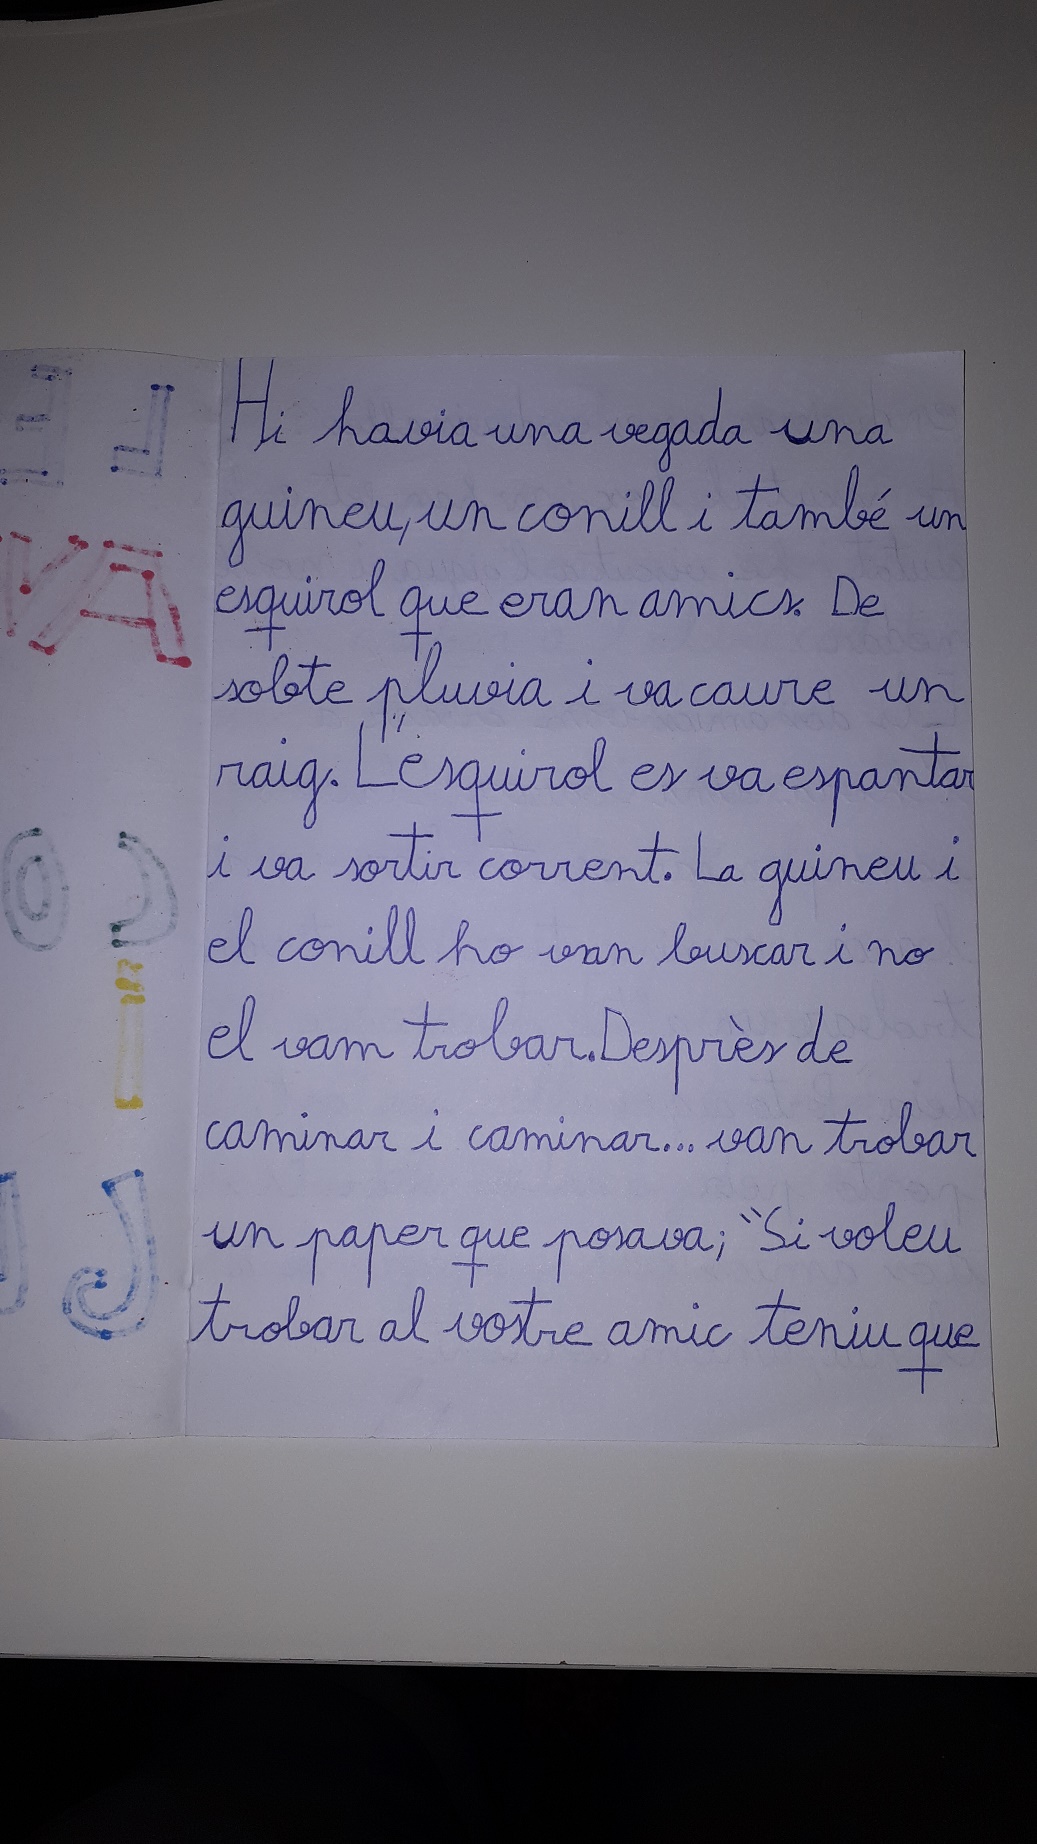 Hi havia una vegada una
guineu, un conill i també un
esquirol que eran amics. De
sobte pluvia i va caure un
raig. L'esquirol es va espantar
i va sortir corrent. La guineu i
el conill ho van buscar i no
el vam trobar. Desprès de
caminar i caminar... van trobar
un paper que posava; "Si voleu
trobar al vostre amic teniu que